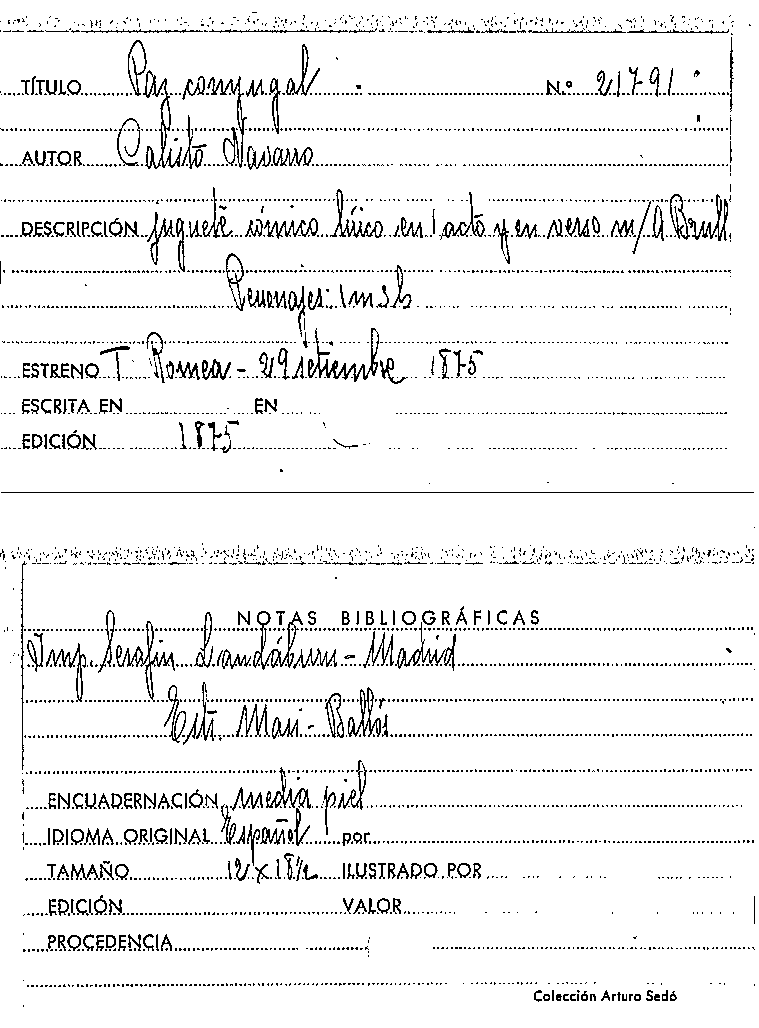 TÍTULO Paz conyugal N.º 21791
AUTOR Calisto Navarro
DESCRIPCIÓN juguete cómico lírico en 1 acto y en verso m/ A Brull
Personajes: 1m 3h
ESTRENO T. Romea - 29 setiembre 1875
ESCRITA EN EN
EDICIÓN 1875
NOTAS BIBLIOGRÁFICAS
Imp. Serafín Landáburu - Madrid
Estr. Mari - Ballós
ENCUADERNACIÓN media piel
IDIOMA ORIGINAL Español por
TAMAÑO 12 x 18 1/2 ILUSTRADO POR
EDICIÓN VALOR
PROCEDENCIA
Colección Arturo Sedó